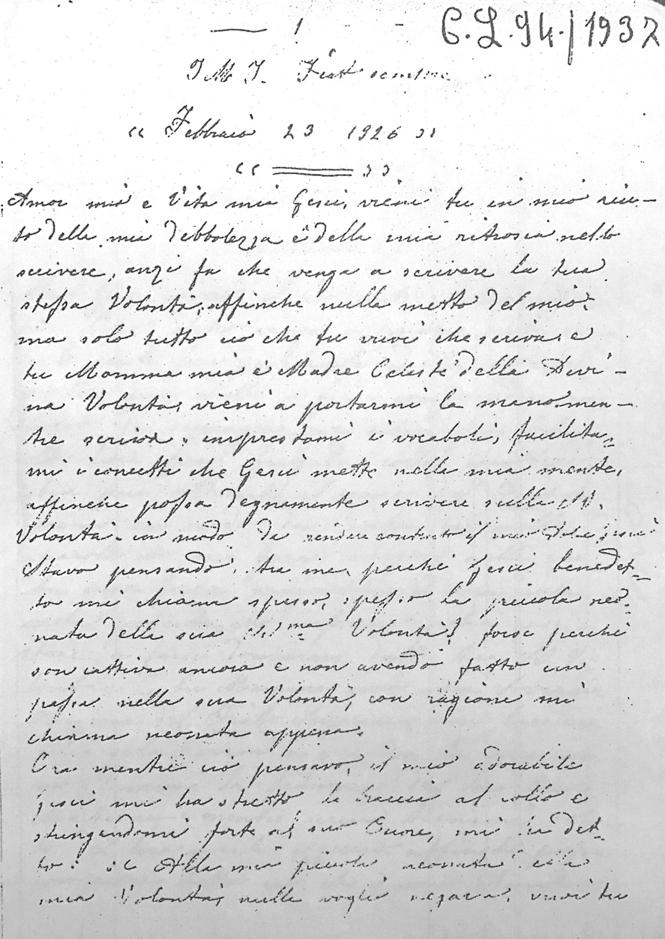 1
C.L. 94./1932
J M J. Fiat sempre
" Febbraio 23 1926 "
Amor mio e Vita mia Gesú, vieni tu in mio aiu-
to della mia debbolezza e della mia ritrosia nello
scrivere, anzi fa che venga a scrivere la tua
stessa Volontà, affinche nulla metto del mio.
ma solo tutto ció che tu vuoi che scriva: e
tu Mamma mia e Madre Celeste della Divi-
na Volontà, vieni a portarmi la mano men-
tre scrivo: imprestami i vocaboli, facilita-
mi i concetti che Gesú mette nella mia mente,
affinche possa degnamente scrivere sulla SS.
Volontà. in modo da rendere contento il mio dolce Gesú
Stavo pensando, tra me, perché Gesú benedet-
to mi chiama spesso, spesso la piccola neo-
nata della sua SS.ma Volontà? forse perché
son cattiva ancora e non avendo fatto un
passo nella sua Volontà, con ragione mi
chiama neonata appena.
Ora mentre ció pensavo, il mio adorabile
Gesú mi ha stretto le braccia al collo e
stringendomi forte al suo Cuore, mi ha det-
to: " Alla mia piccola neonata della
mia Volontà, nulla voglio negare, vuoi tu